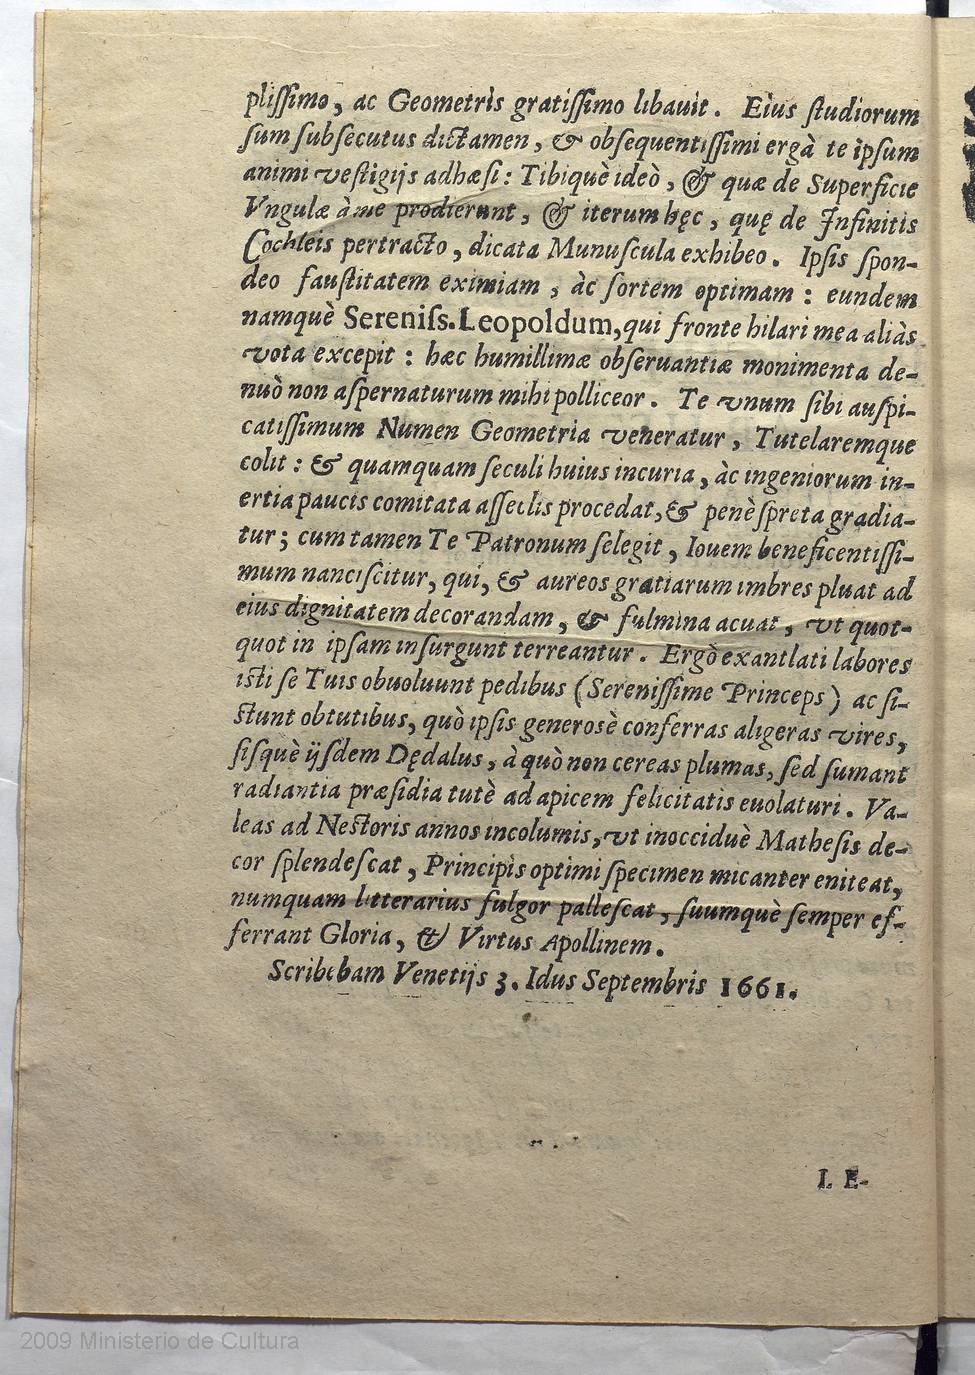 pliſſimo, ac Geometris gratiſſimo libauit. Eius ſtudiorum
ſum ſubſecutus dictamen, & obſequentiſſimi ergà te ipſum
animi veſtigijs adhæſi: Tibiquè ideò, & quæ de Superficie
Vngulæ à me prodierunt, & iterum hęc, quę de Infinitis
Cochleis pertracto, dicata Munuſcula exhibeo. Ipſis ſpon-
deo fauſtitatem eximiam, àc ſortem optimam: eundem
namquè Sereniſs. Leopoldum, qui fronte hilari mea aliàs
vota excepit: hæc humillimæ obſeruantiæ monimenta de-
nuò non aſpernaturum mihi polliceor. Te vnum ſibi auſpi-
catiſſimum Numen Geometria veneratur, Tutelaremque
colit: & quamquam ſeculi huius incuria, àc ingeniorum in-
ertia paucis comitata aſſeclis procedat, & penè ſpreta gradia-
tur; cum tamen Te Patronum ſelegit, Iouem beneficentiſſi-
mum nanciſcitur, qui, & aureos gratiarum imbres pluat ad
eius dignitatem decorandam, & fulmina acuat, vt quot-
quot in ipſam inſurgunt terreantur. Ergò exantlati labores
iſti ſe Tuis obuoluunt pedibus (Sereniſſime Princeps) ac ſi-
ſtunt obtutibus, quò ipſis generosè conferras aligeras vires,
ſiſquè ijſdem Dędalus, à quò non cereas plumas, ſed ſumant
radiantia præſidia tutè ad apicem felicitatis euolaturi. Va-
leas ad Neſtoris annos incolumis, vt inocciduè Matheſis de-
cor ſplendeſcat, Principis optimi ſpecimen micanter eniteat,
numquam litterarius fulgor palleſcat, ſuumquè ſemper ef-
ferrant Gloria, & Virtus Apollinem.
Scribebam Venetijs 3. Idus Septembris 1661.
I. E-
2009 Ministerio de Cultura